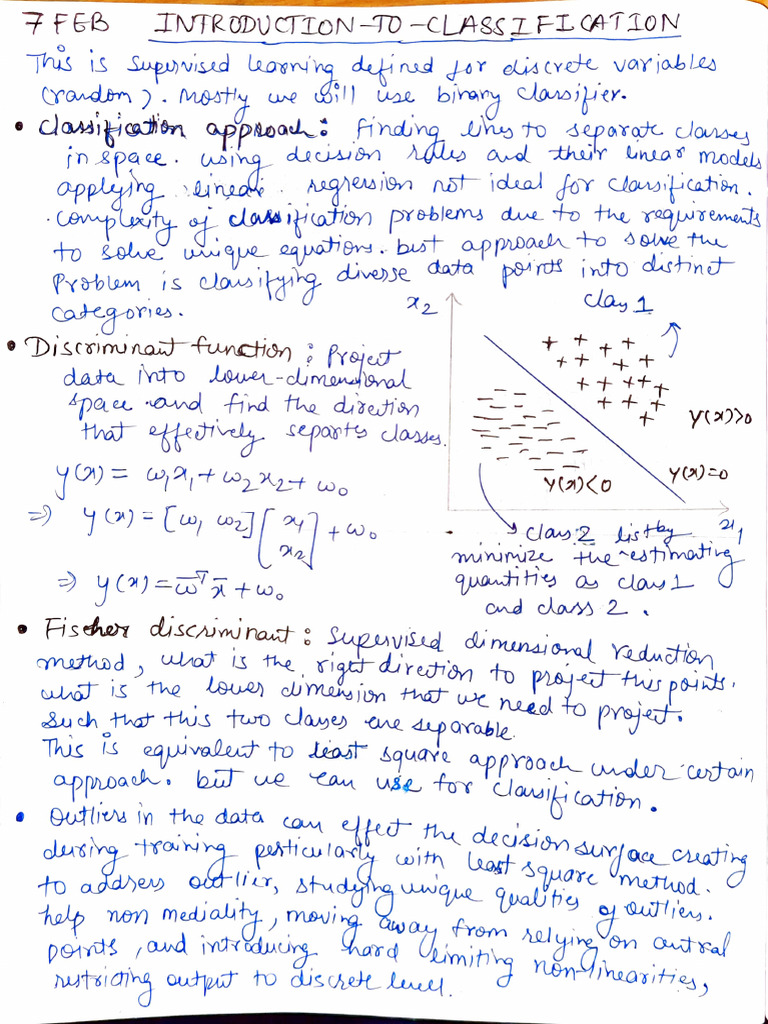 7 FEB INTRODUCTION-TO-CLASSIFICATION
This is supervised learning defined for discrete variables
(random). Mostly we will use binary classifier.
• Classification approach: finding lines to separate classes
in space. using decision rules and their linear models
applying linear regression not ideal for classification.
. complexity of classification problems due to the requirements
to solve unique equations. but approach to solve the
Problem is classifying diverse data points into distinct
categories.
x2
class 1
• Discriminant function: Project
data into lower-dimensional
space and find the direction
that effectively separtes classes.
y(x)>0
y(x)=0
y(x)<0
x1
y(x) = ω1x1 + ω2x2 + ω0
⇒ y(x) = [ω1 ω2] [x1 x2] + ω0
⇒ y(x) = ω̄ᵀ x̄ + ω0
class 2 list by
minimize the estimating
quantities as class 1
and class 2.
• Fischer discriminant: Supervised dimensional reduction
method, what is the right direction to project this points.
what is the lower dimension that we need to project.
Such that this two classes are separable.
This is equivalent to least square approach under certain
approach. but we can use for classification.
• Outliers in the data can effect the decision surface creating
during training perticularly with least square method.
to address outlier, studying unique qualities of outliers.
help non mediality, moving away from relying on
points, and introducing hard limiting non-linearities,
restricting output to discrete level.